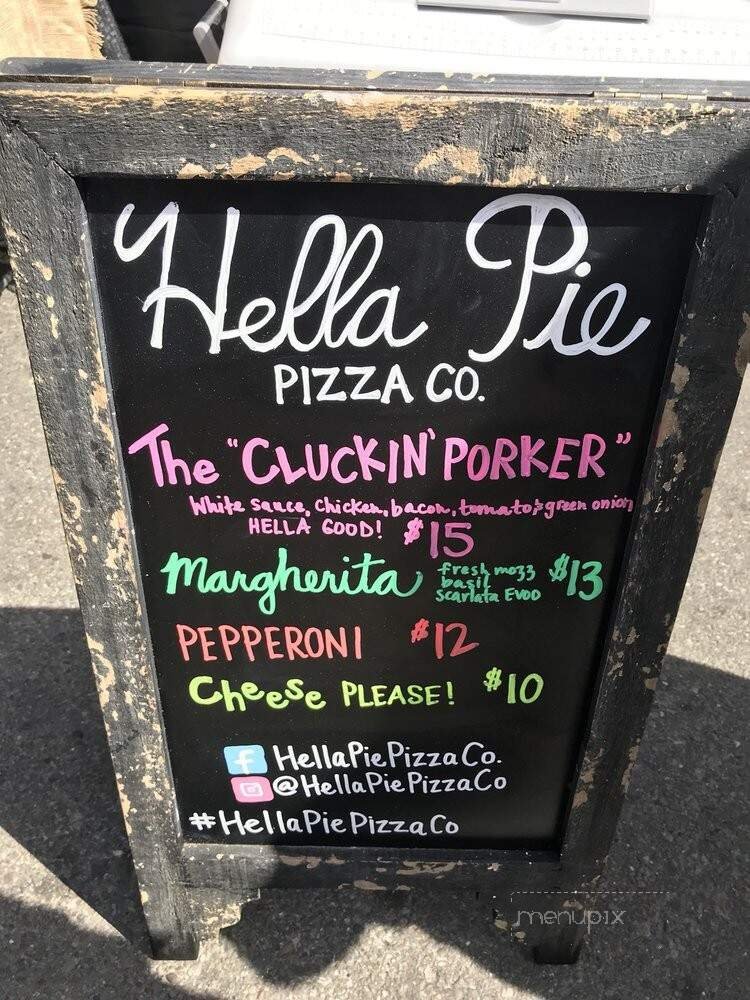 Hella Pie
PIZZA CO.
The "CLUCKIN' PORKER"
White sauce, chicken, bacon, tomato, & green onion
HELLA GOOD! $15
Margherita fresh mozz $13
basil
scarlata EVOO
PEPPERONI $12
Cheese PLEASE! $10
f HellaPiePizzaCo.
@HellaPiePizzaCo
#HellaPiePizzaCo
menupix